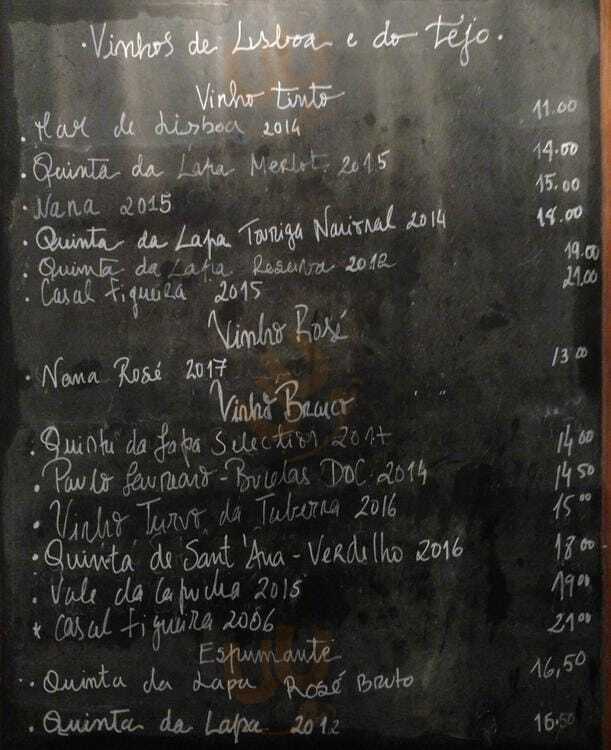 · Vinhos de Lisboa e do Tejo ·
Vinho tinto
· Mar de Lisboa 2014 11.00
· Quinta da Lapa Merlot 2015 14.00
· Nana 2015 15.00
· Quinta da Lapa Touriga Nacional 2014 18.00
· Quinta da Lapa Reserva 2012 19.00
· Casal Figueira 2015 21.00
Vinho Rosé
· Nana Rosé 2017 13.00
Vinho Branco
· Quinta da Lapa Selection 2017 14.00
· Paulo - Bucelas DOC. 2014 14.50
· Vinho Turvo da Taberna 2016 15.00
· Quinta de Sant'Ana - Verdelho 2016 18.00
· Vale da Capucha 2015 19.00
* Casal Figueira 2006 21.00
Espumante
·· Quinta da Lapa Rosé Bruto 16,50
· Quinta da Lapa 2012 16.50